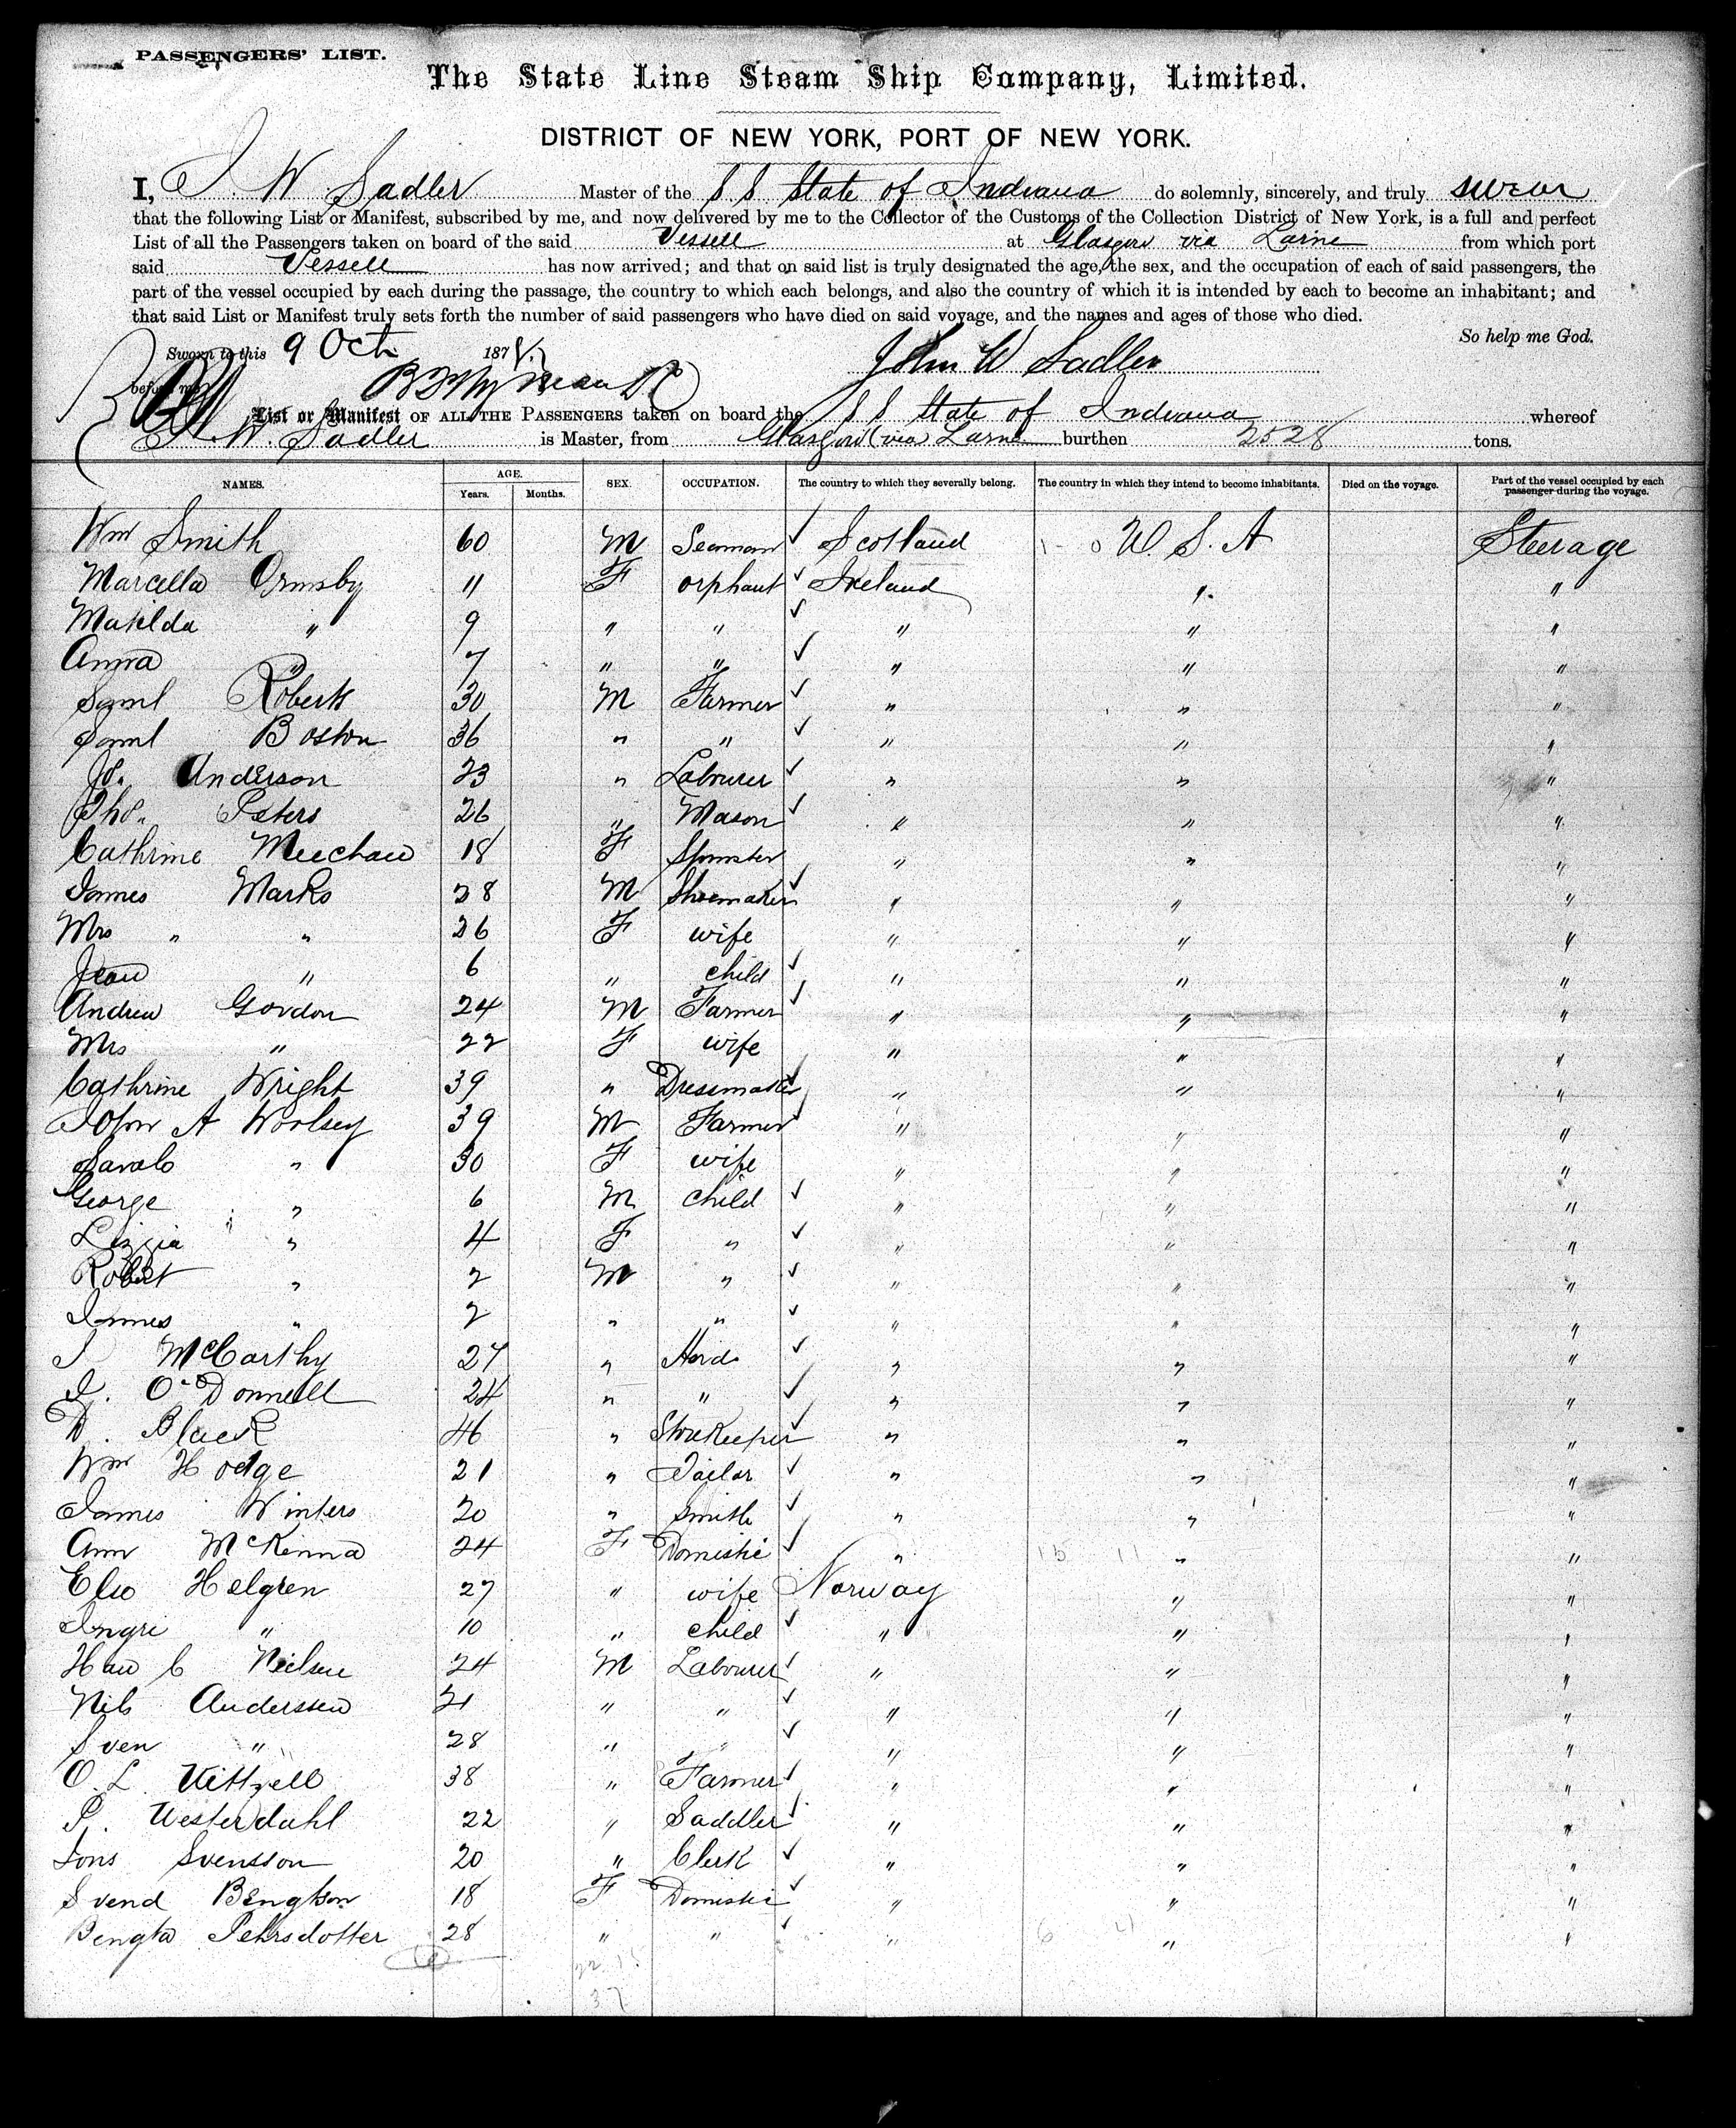 PASSENGERS' LIST.
The State Line Steam Ship Company, Limited.
DISTRICT OF NEW YORK, PORT OF NEW YORK.
I, J. W. Sadler Master of the S S State of Indiana do solemnly, sincerely, and truly swear
that the following List or Manifest, subscribed by me, and now delivered by me to the Collector of the Customs of the Collection District of New York, is a full and perfect
List of all the Passengers taken on board of the said Vessell at Glasgow via Larne from which port
said Vessell has now arrived; and that on said list is truly designated the age, the sex, and the occupation of each of said passengers, the
part of the vessel occupied by each during the passage, the country to which each belongs, and also the country of which it is intended by each to become an inhabitant; and
that said List or Manifest truly sets forth the number of said passengers who have died on said voyage, and the names and ages of those who died.
So help me God.
Sworn to this 9 Oct 1878
John W Sadler
before me
List or Manifest OF ALL THE PASSENGERS taken on board the S S State of Indiana whereof
J. W. Sadler is Master, from Glasgow (via) Larne burthen 2528 tons.
NAMES. AGE. Years. Months. SEX. OCCUPATION. The country to which they severally belong. The country in which they intend to become inhabitants. Died on the voyage. Part of the vessel occupied by each passenger during the voyage.
Wm Smith 60 M Seaman Scotland U. S. A Steerage
Marcella Ormsby 11 F orphant Ireland " "
Matilda " 9 " " " " "
Anna " 7 " " " " "
Saml Roberts 30 M Farmer " " "
Saml Boston 36 " " " " "
Js. Anderson 23 " Labourer " " "
Thos. Peters 26 " Mason " " "
Cathrine Meechan 18 F Spinster " " "
James Marks 28 M Shoemaker " " "
Mrs " " 26 F wife " " "
Jean " 6 " child " " "
Andrew Gordon 24 M Farmer " " "
Mrs " 22 F wife " " "
Cathrine Wright 39 " Dressmaker " " "
John A Woolsey 39 M Farmer " " "
Sarah " 30 F wife " " "
George " 6 M child " " "
Lizzia " 4 F " " " "
Robert " 2 M " " " "
James " 2 " " " " "
J McCarthy 27 " Herd " " "
J. O'Donnell 24 " " " " "
D. Black 46 " Storekeeper " " "
Wm Hodge 21 " Tailor " " "
James Winters 20 " Smith " " "
Ann McKenna 24 F Domestic " " "
Else Helgren 27 " wife Norway " "
Ingri " 10 " child " " "
Han C Neilsen 24 M Labourer " " "
Nils Anderssen 21 " " " " "
Sven " 28 " " " " "
O. L 38 " Farmer " " "
P. Westerdahl 22 " Saddler " " "
Jons Svensson 20 " Clerk " " "
Svend Bengtson 18 F Domestic " " "
Bengta Pehrsdotter 28 " " " " "
37